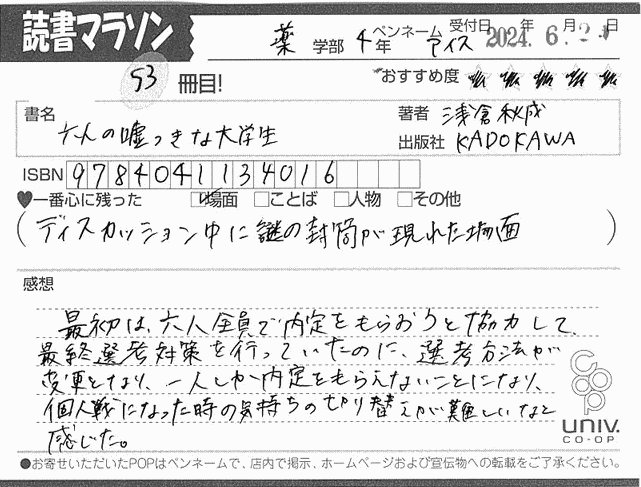 読書マラソン
薬 学部 4年 ペンネーム アイス 受付日 年 月 日
2024. 6. 2
53 冊目!
おすすめ度
書名 六人の嘘つきな大学生
著者 浅倉秋成
出版社 KADOKAWA
ISBN 9784041134016
♥一番心に残った ☑場面 □ことば □人物 □その他
(ディスカッション中に謎の封筒が現れた場面)
感想
最初は、六人全員で内定をもらおうと協力して、
最終選考対策を行っていたのに、選考方法が
変更となり、一人しか内定をもらえないことになり、
個人戦になった時の気持ちの切り替えが難しいなと
感じた。
coop
UNIV.
CO-OP
●お寄せいただいたPOPはペンネームで、店内で掲示、ホームページおよび宣伝物への転載をご了承ください。